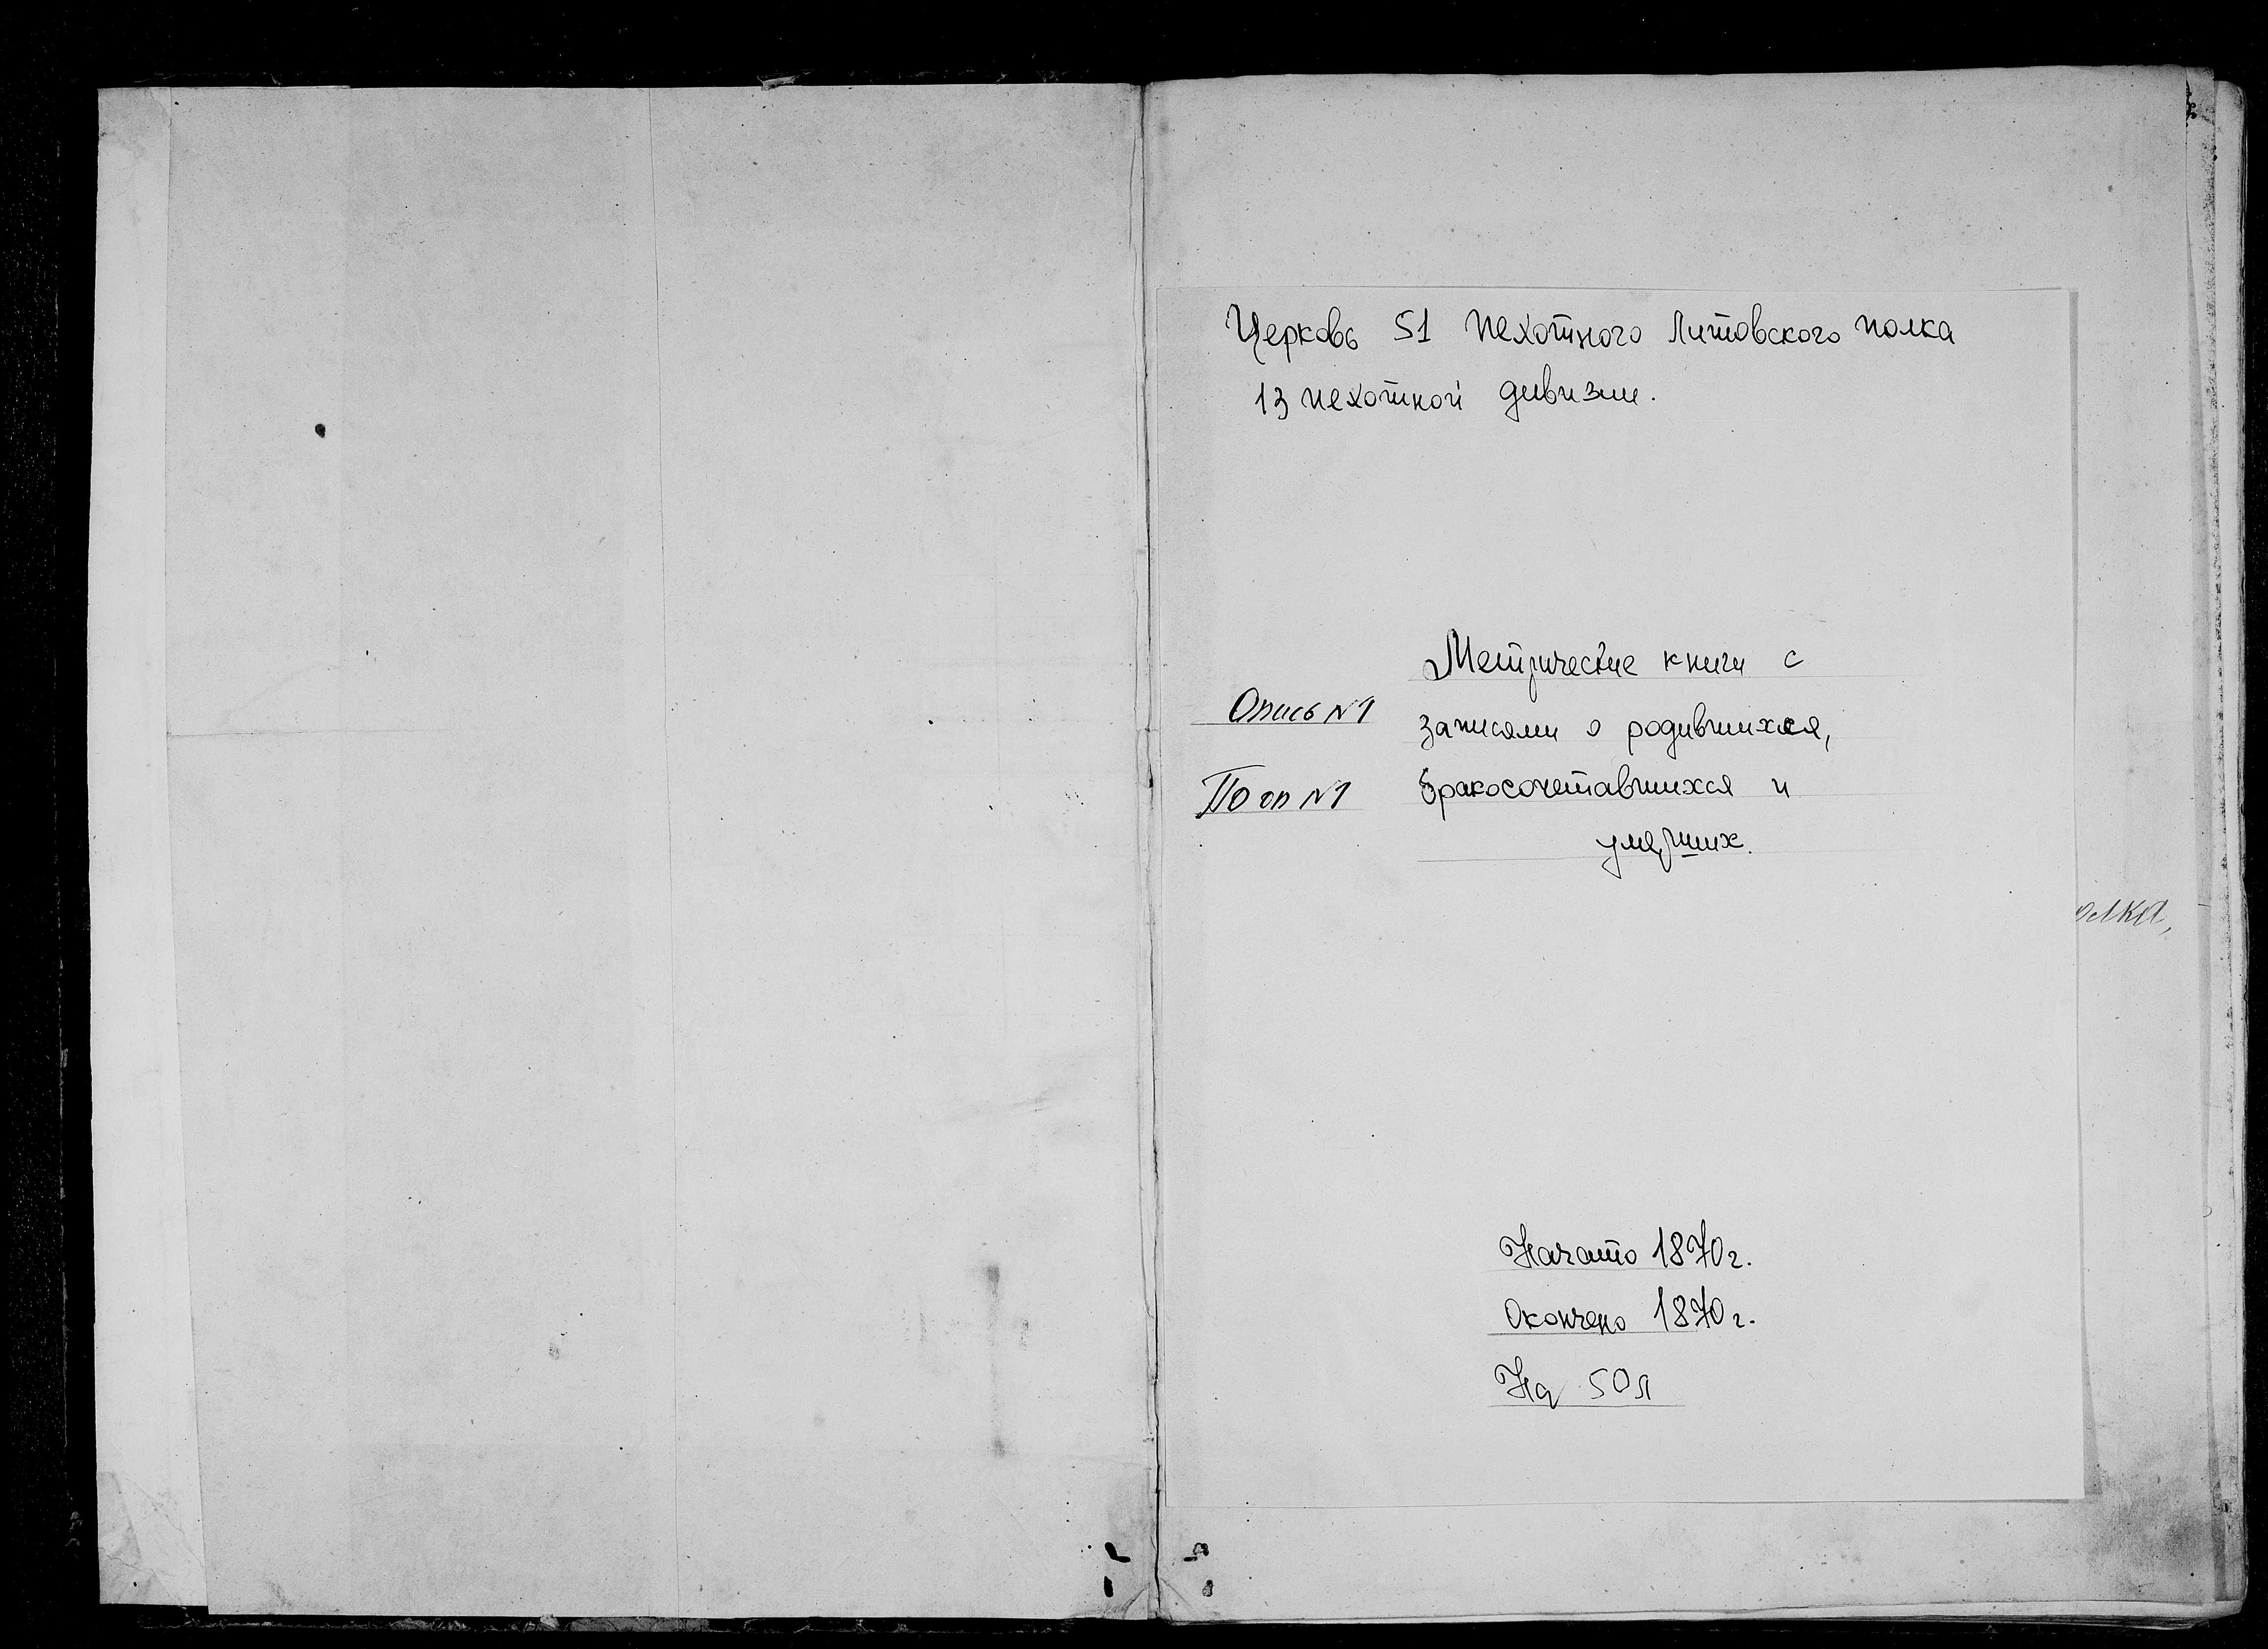 Церковь 51 пехотного Литовского полка
13 пехотной дивизии.
Метрические книги с
Опись №1
записями о родившихся,
По оп №1
бракосочетавшихся и
умерших.
олка,
Начато 1870 г.
Окончено 1870 г.
На 50 л